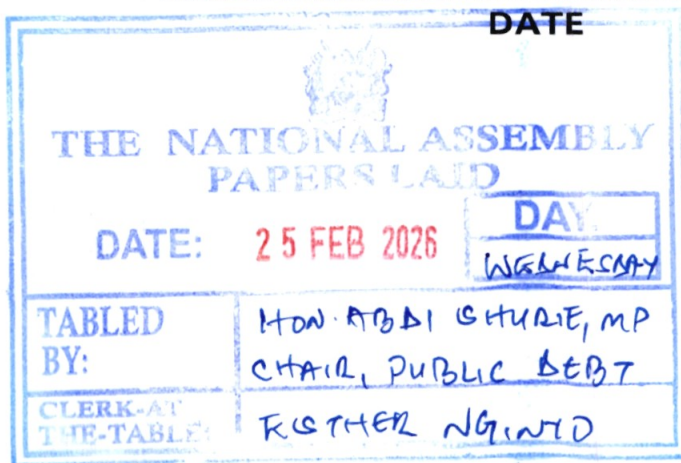 DATE
THE NATIONAL ASSEMBLY
PAPERS LAID
DATE: 25 FEB 2026
DAY.
WEDNESDAY
TABLED BY:
HON. ABDI SHURIE, MP
CHAIR, PUBLIC DEBT
CLERK-AT THE-TABLE:
ESTHER NGINYO